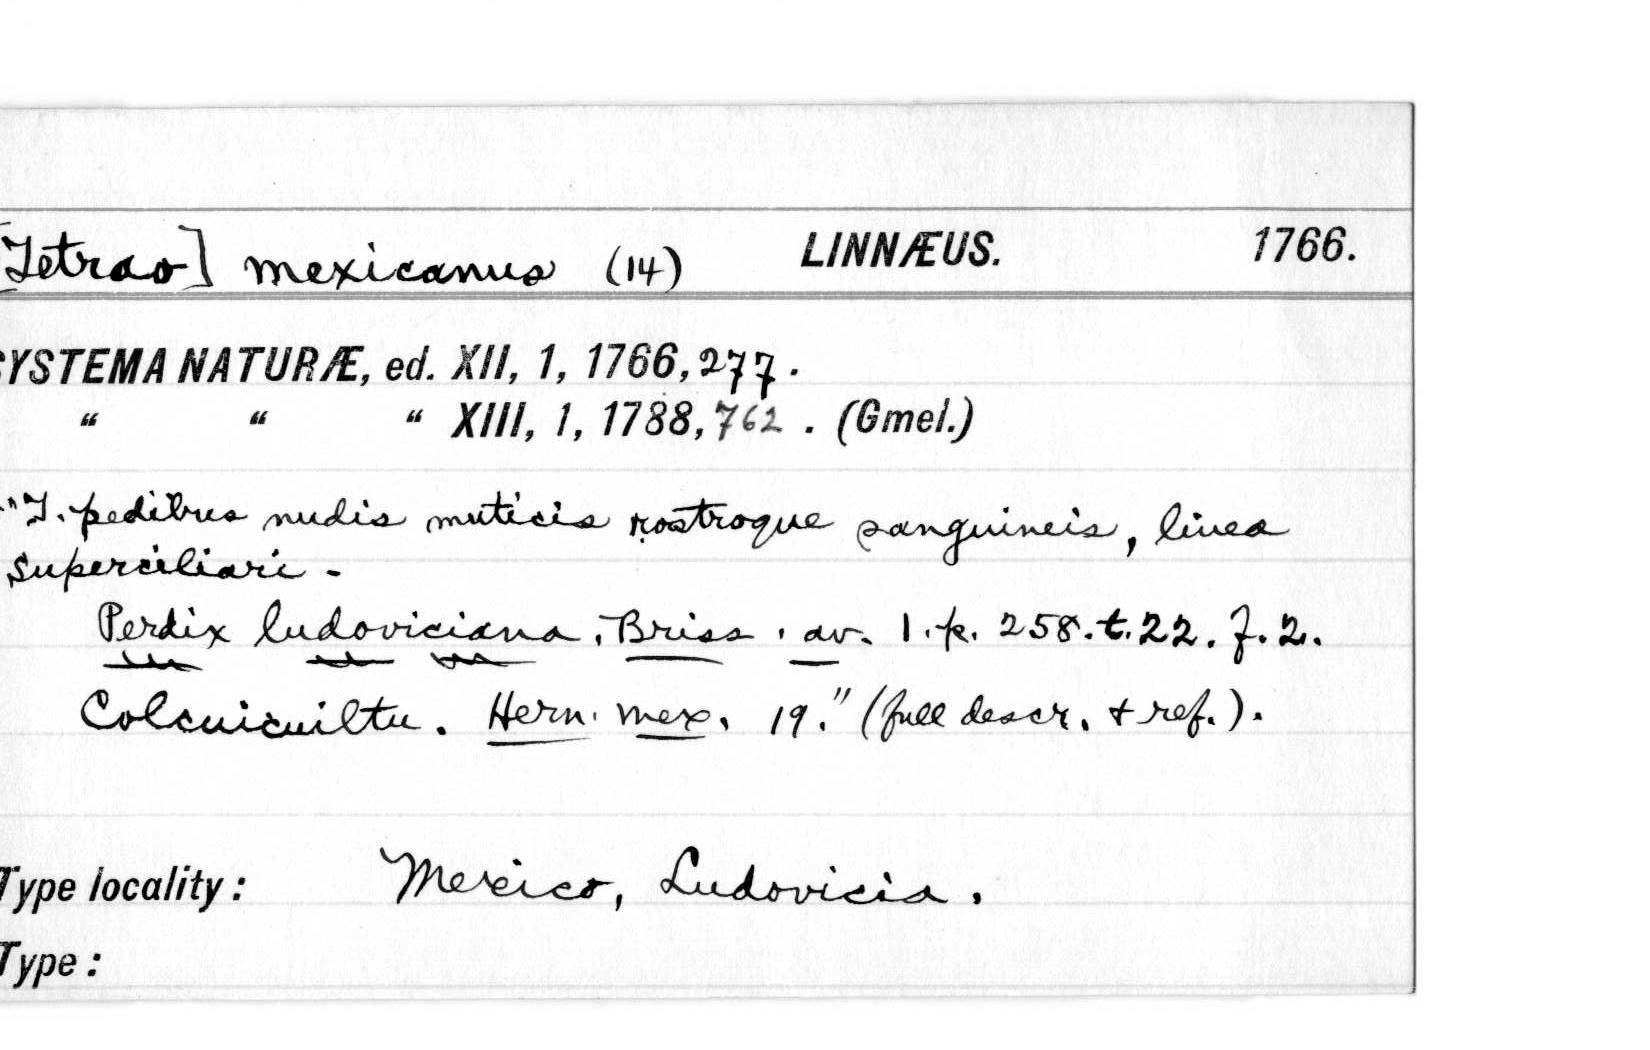 [Tetrao] mexicanus (14) LINNÆUS. 1766.
SYSTEMA NATURÆ, ed. XII, 1, 1766, 277.
“ “ “ XIII, 1, 1788, 762. (Gmel.)
"T. pedibus nudis muticis rostroque sanguineis, linea
superciliari -
Perdix ludoviciana. Briss. av. 1. p. 258. t. 22. f. 2.
Colcuicuiltu. Hern. mex. 19." (full descr. + ref.).
Type locality: Mexico, Ludovicia.
Type: